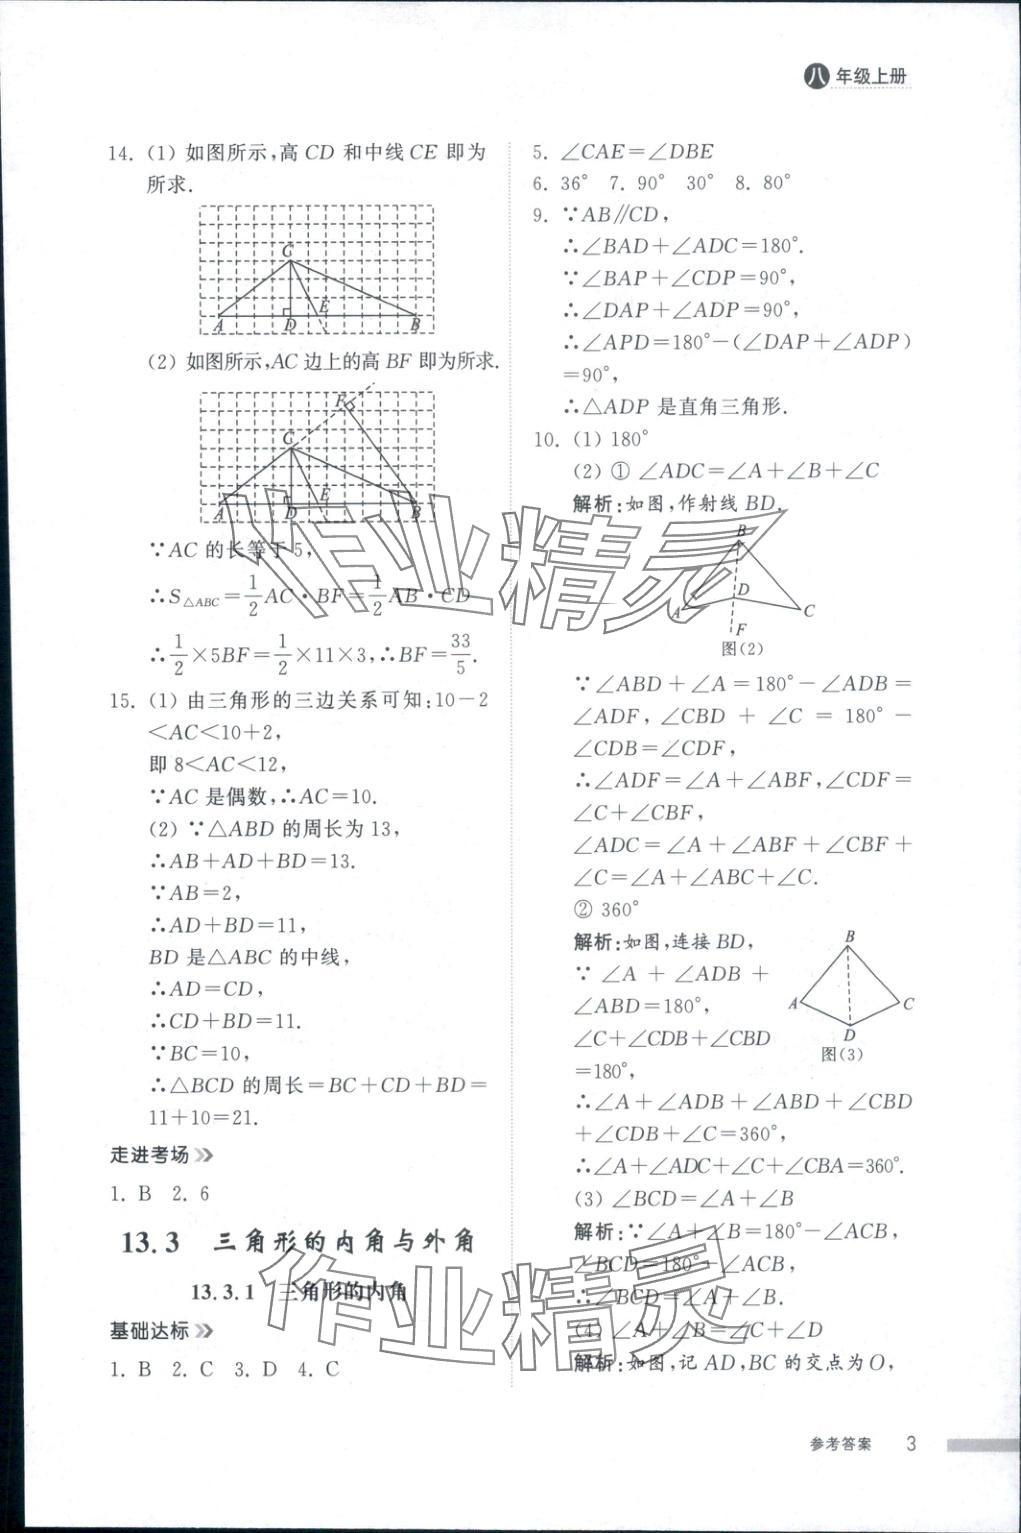 八年级上册
14. (1) 如图所示,高 CD 和中线 CE 即为
所求.
C
A
D
E
B
(2) 如图所示,AC 边上的高 BF 即为所求.
F
C
A
D
E
B
∵AC 的长等于 5,
∴S△ABC=1/2AC·BF=1/2AB·CD
∴1/2×5BF=1/2×11×3,∴BF=33/5.
15. (1) 由三角形的三边关系可知:10-2
<AC<10+2,
即 8<AC<12,
∵AC 是偶数,∴AC=10.
(2) ∵△ABD 的周长为 13,
∴AB+AD+BD=13.
∵AB=2,
∴AD+BD=11,
BD 是△ABC 的中线,
∴AD=CD,
∴CD+BD=11.
∵BC=10,
∴△BCD 的周长=BC+CD+BD=
11+10=21.
走进考场
1. B 2. 6
13.3 三角形的内角与外角
13.3.1 三角形的内角
基础达标
1. B 2. C 3. D 4. C
5. ∠CAE=∠DBE
6. 36° 7. 90° 30° 8. 80°
9. ∵AB∥CD,
∴∠BAD+∠ADC=180°.
∵∠BAP+∠CDP=90°,
∴∠DAP+∠ADP=90°,
∴∠APD=180°-(∠DAP+∠ADP)
=90°,
∴△ADP 是直角三角形.
10. (1) 180°
(2) ① ∠ADC=∠A+∠B+∠C
解析:如图,作射线 BD,
B
A
D
C
F
图(2)
∵∠ABD+∠A=180°-∠ADB=
∠ADF,∠CBD+∠C=180°-
∠CDB=∠CDF,
∴∠ADF=∠A+∠ABF,∠CDF=
∠C+∠CBF,
∠ADC=∠A+∠ABF+∠CBF+
∠C=∠A+∠ABC+∠C.
② 360°
解析:如图,连接 BD,
∵∠A+∠ADB+
∠ABD=180°,
∠C+∠CDB+∠CBD
=180°,
B
A
C
D
图(3)
∴∠A+∠ADB+∠ABD+∠CBD
+∠CDB+∠C=360°,
∴∠A+∠ADC+∠C+∠CBA=360°.
(3) ∠BCD=∠A+∠B
解析:∵∠A+∠B=180°-∠ACB,
∠BCD=180°-∠ACB,
∴∠BCD=∠A+∠B.
(4) ∠A+∠B=∠C+∠D
解析:如图,记 AD,BC 的交点为 O,
参考答案 3
作业精灵
作业精灵